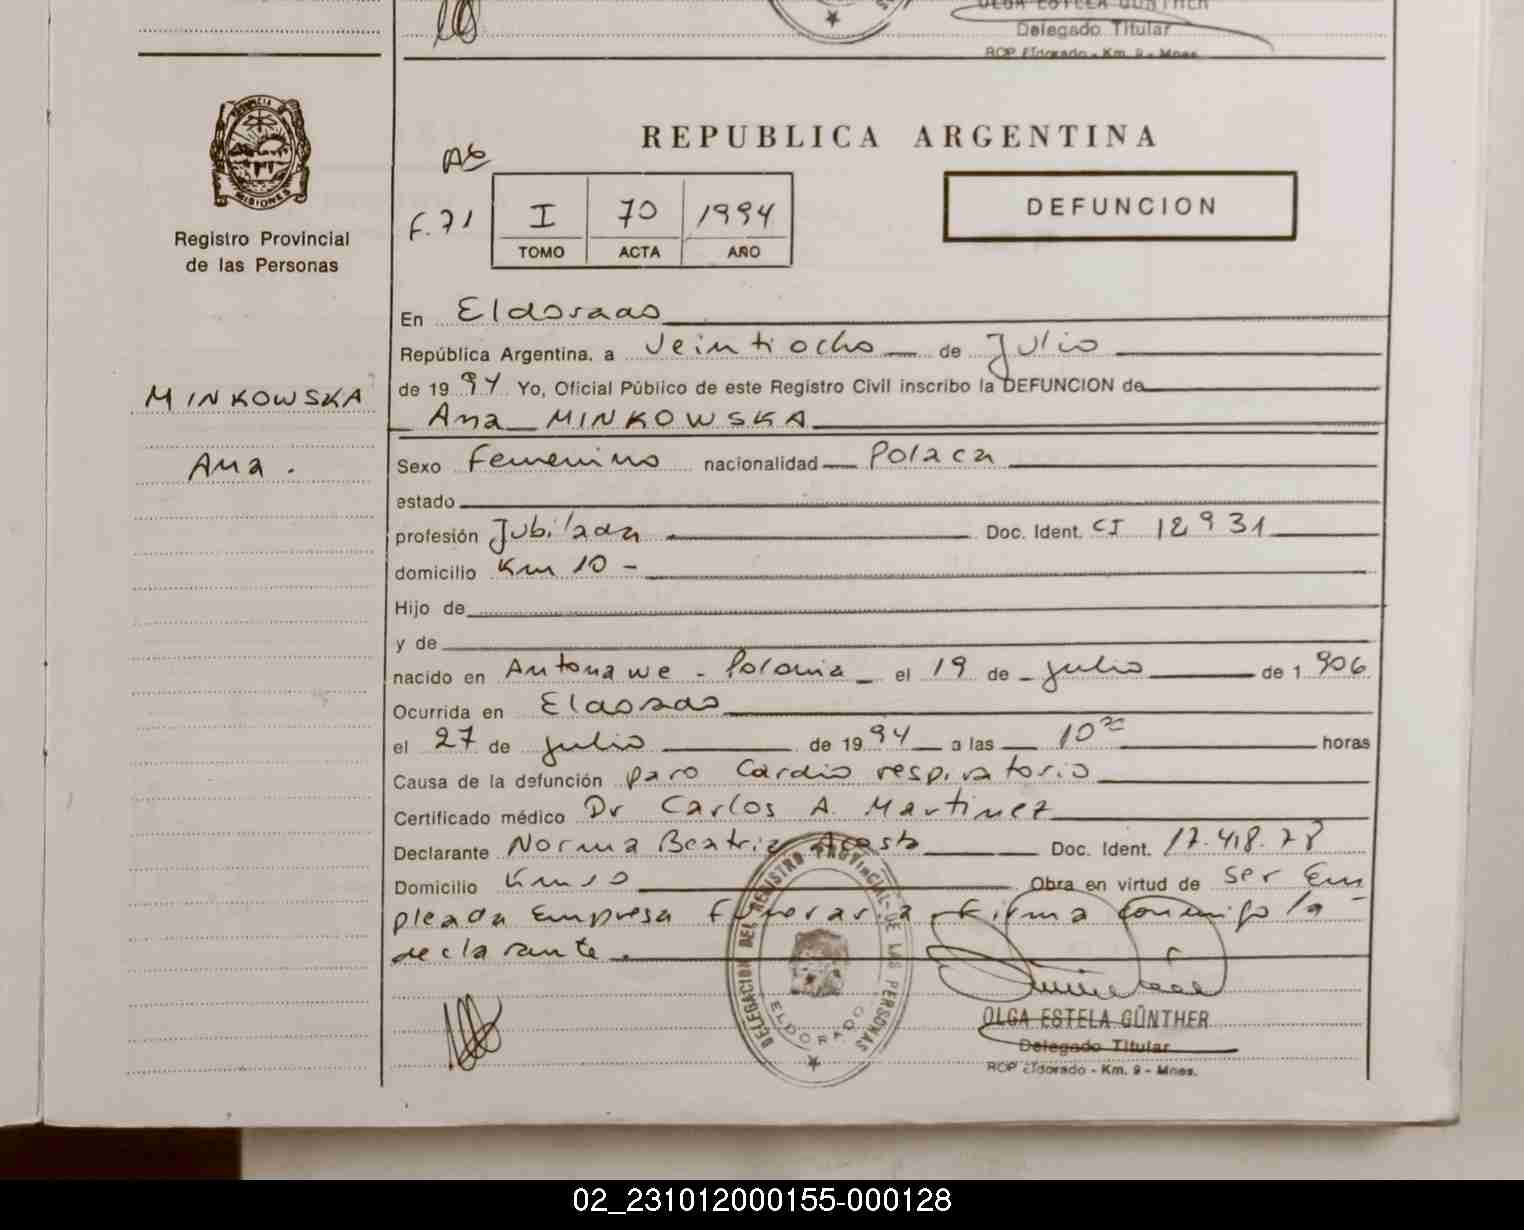 OLGA ESTELA GÜNTHER
Delegado Titular
RCP Eldorado - Km. 9 - Mnes.
PROVINCIA DE
MISIONES
Registro Provincial
de las Personas
MINKOWSKA
Ana.
REPUBLICA ARGENTINA
F. 71
I 70 1994
TOMO ACTA AÑO
DEFUNCION
En Eldorado
República Argentina, a Veintiocho de Julio
de 1994 Yo, Oficial Público de este Registro Civil inscribo la DEFUNCION de
Ana MINKOWSKA
Sexo Femenino nacionalidad Polaca
estado
profesión Jubilada Doc. Ident. CI 12931
domicilio Km 10 -
Hijo de
y de
nacido en Antonawe - Polonia el 19 de julio de 1906
Ocurrida en Eldorado
el 27 de julio de 1994 a las 10 horas
Causa de la defunción paro Cardio respiratorio
Certificado médico Dr Carlos A. Martinez
Declarante Norma Beatriz Acosta Doc. Ident. 17.418.78
Domicilio Km 10 Obra en virtud de ser Em
pleada Empresa Funeraria - Firma conmigo la
declarante.
DELEGACION DEL REGISTRO PROVINCIAL DE LAS PERSONAS
ELDORADO
OLGA ESTELA GÜNTHER
Delegado Titular
RCP Eldorado - Km. 9 - Mnes.
02_231012000155-000128